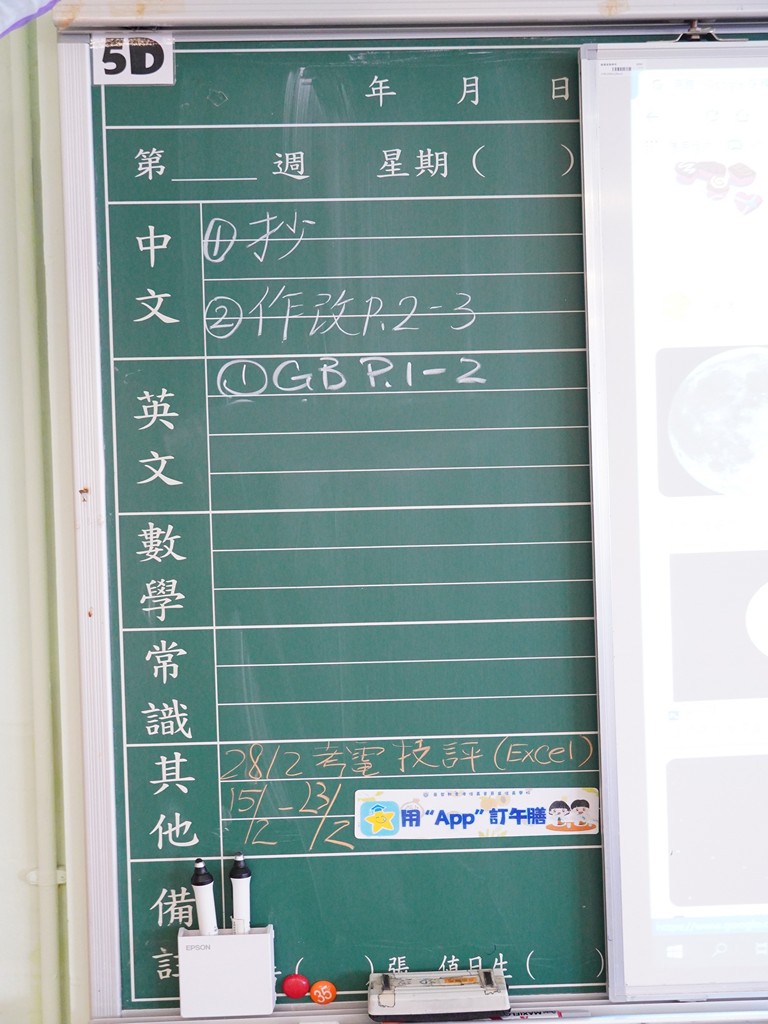 5D
年 月 日
第____週 星期( )
中文
①抄
②作改P.2-3
英文
①GB P.1-2
數學
常識
其他
28/2 考電技評(Excel)
15/12 - 23/12
用“App”訂午膳
備註
EPSON
( )張 值日生( )
35